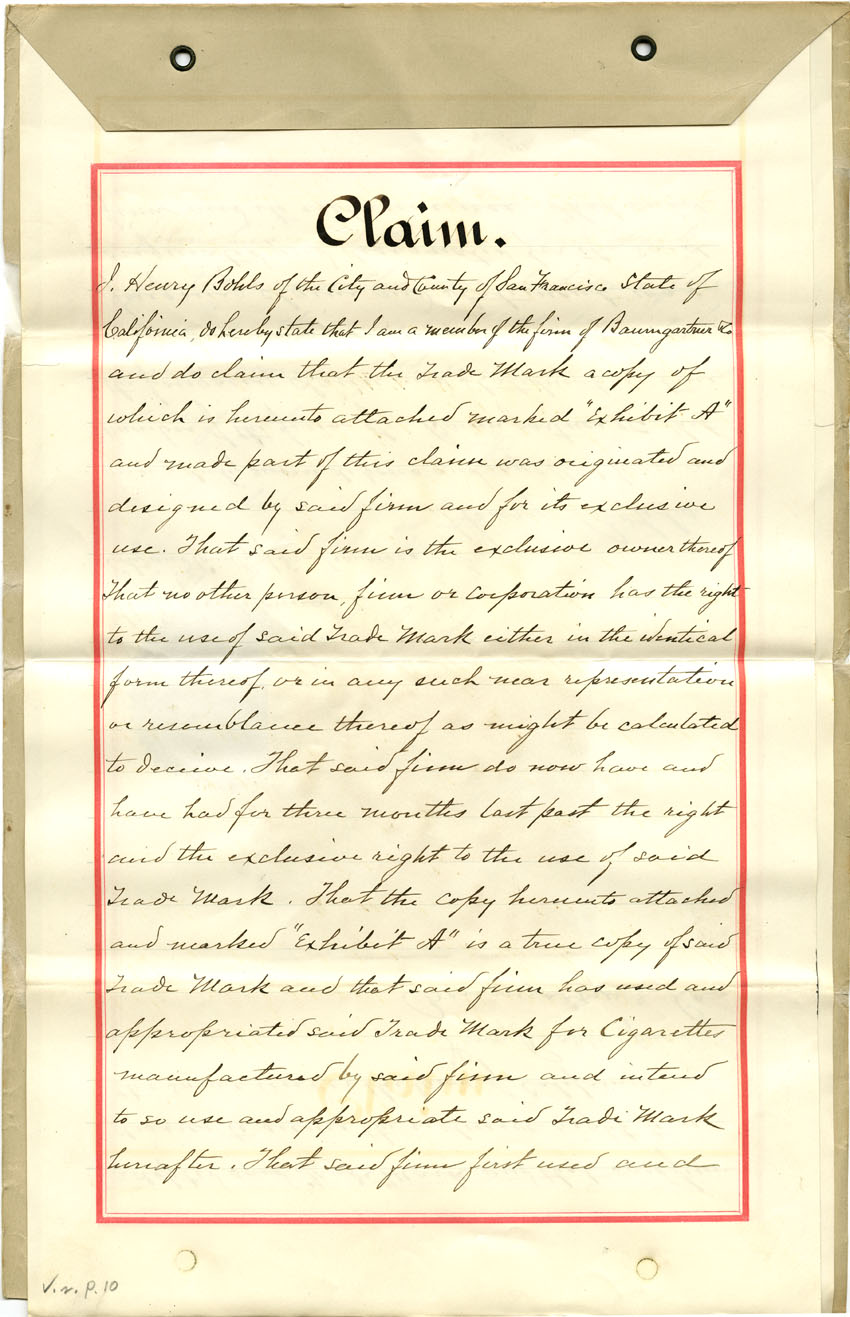 Claim.
I. Henry Bohls of the City and County of San Francisco State of
California, do hereby state that I am a member of the firm of Baumgartner & Co
and do claim that the Trade Mark a copy of
which is hereunto attached marked "Exhibit A"
and made part of this claim was originated and
designed by said firm and for its exclusive
use. That said firm is the exclusive owner thereof
That no other person, firm or corporation has the right
to the use of said Trade Mark either in the identical
form thereof, or in any such near representation
or resemblance thereof as might be calculated
to deceive. That said firm do now have and
have had for three months last past the right
and the exclusive right to the use of said
Trade Mark. That the copy hereunto attached
and marked "Exhibit A" is a true copy of said
Trade Mark and that said firm has used and
appropriated said Trade Mark for Cigarettes
manufactured by said firm and intend
to so use and appropriate said Trade Mark
hereafter. That said firm first used and
p. 10